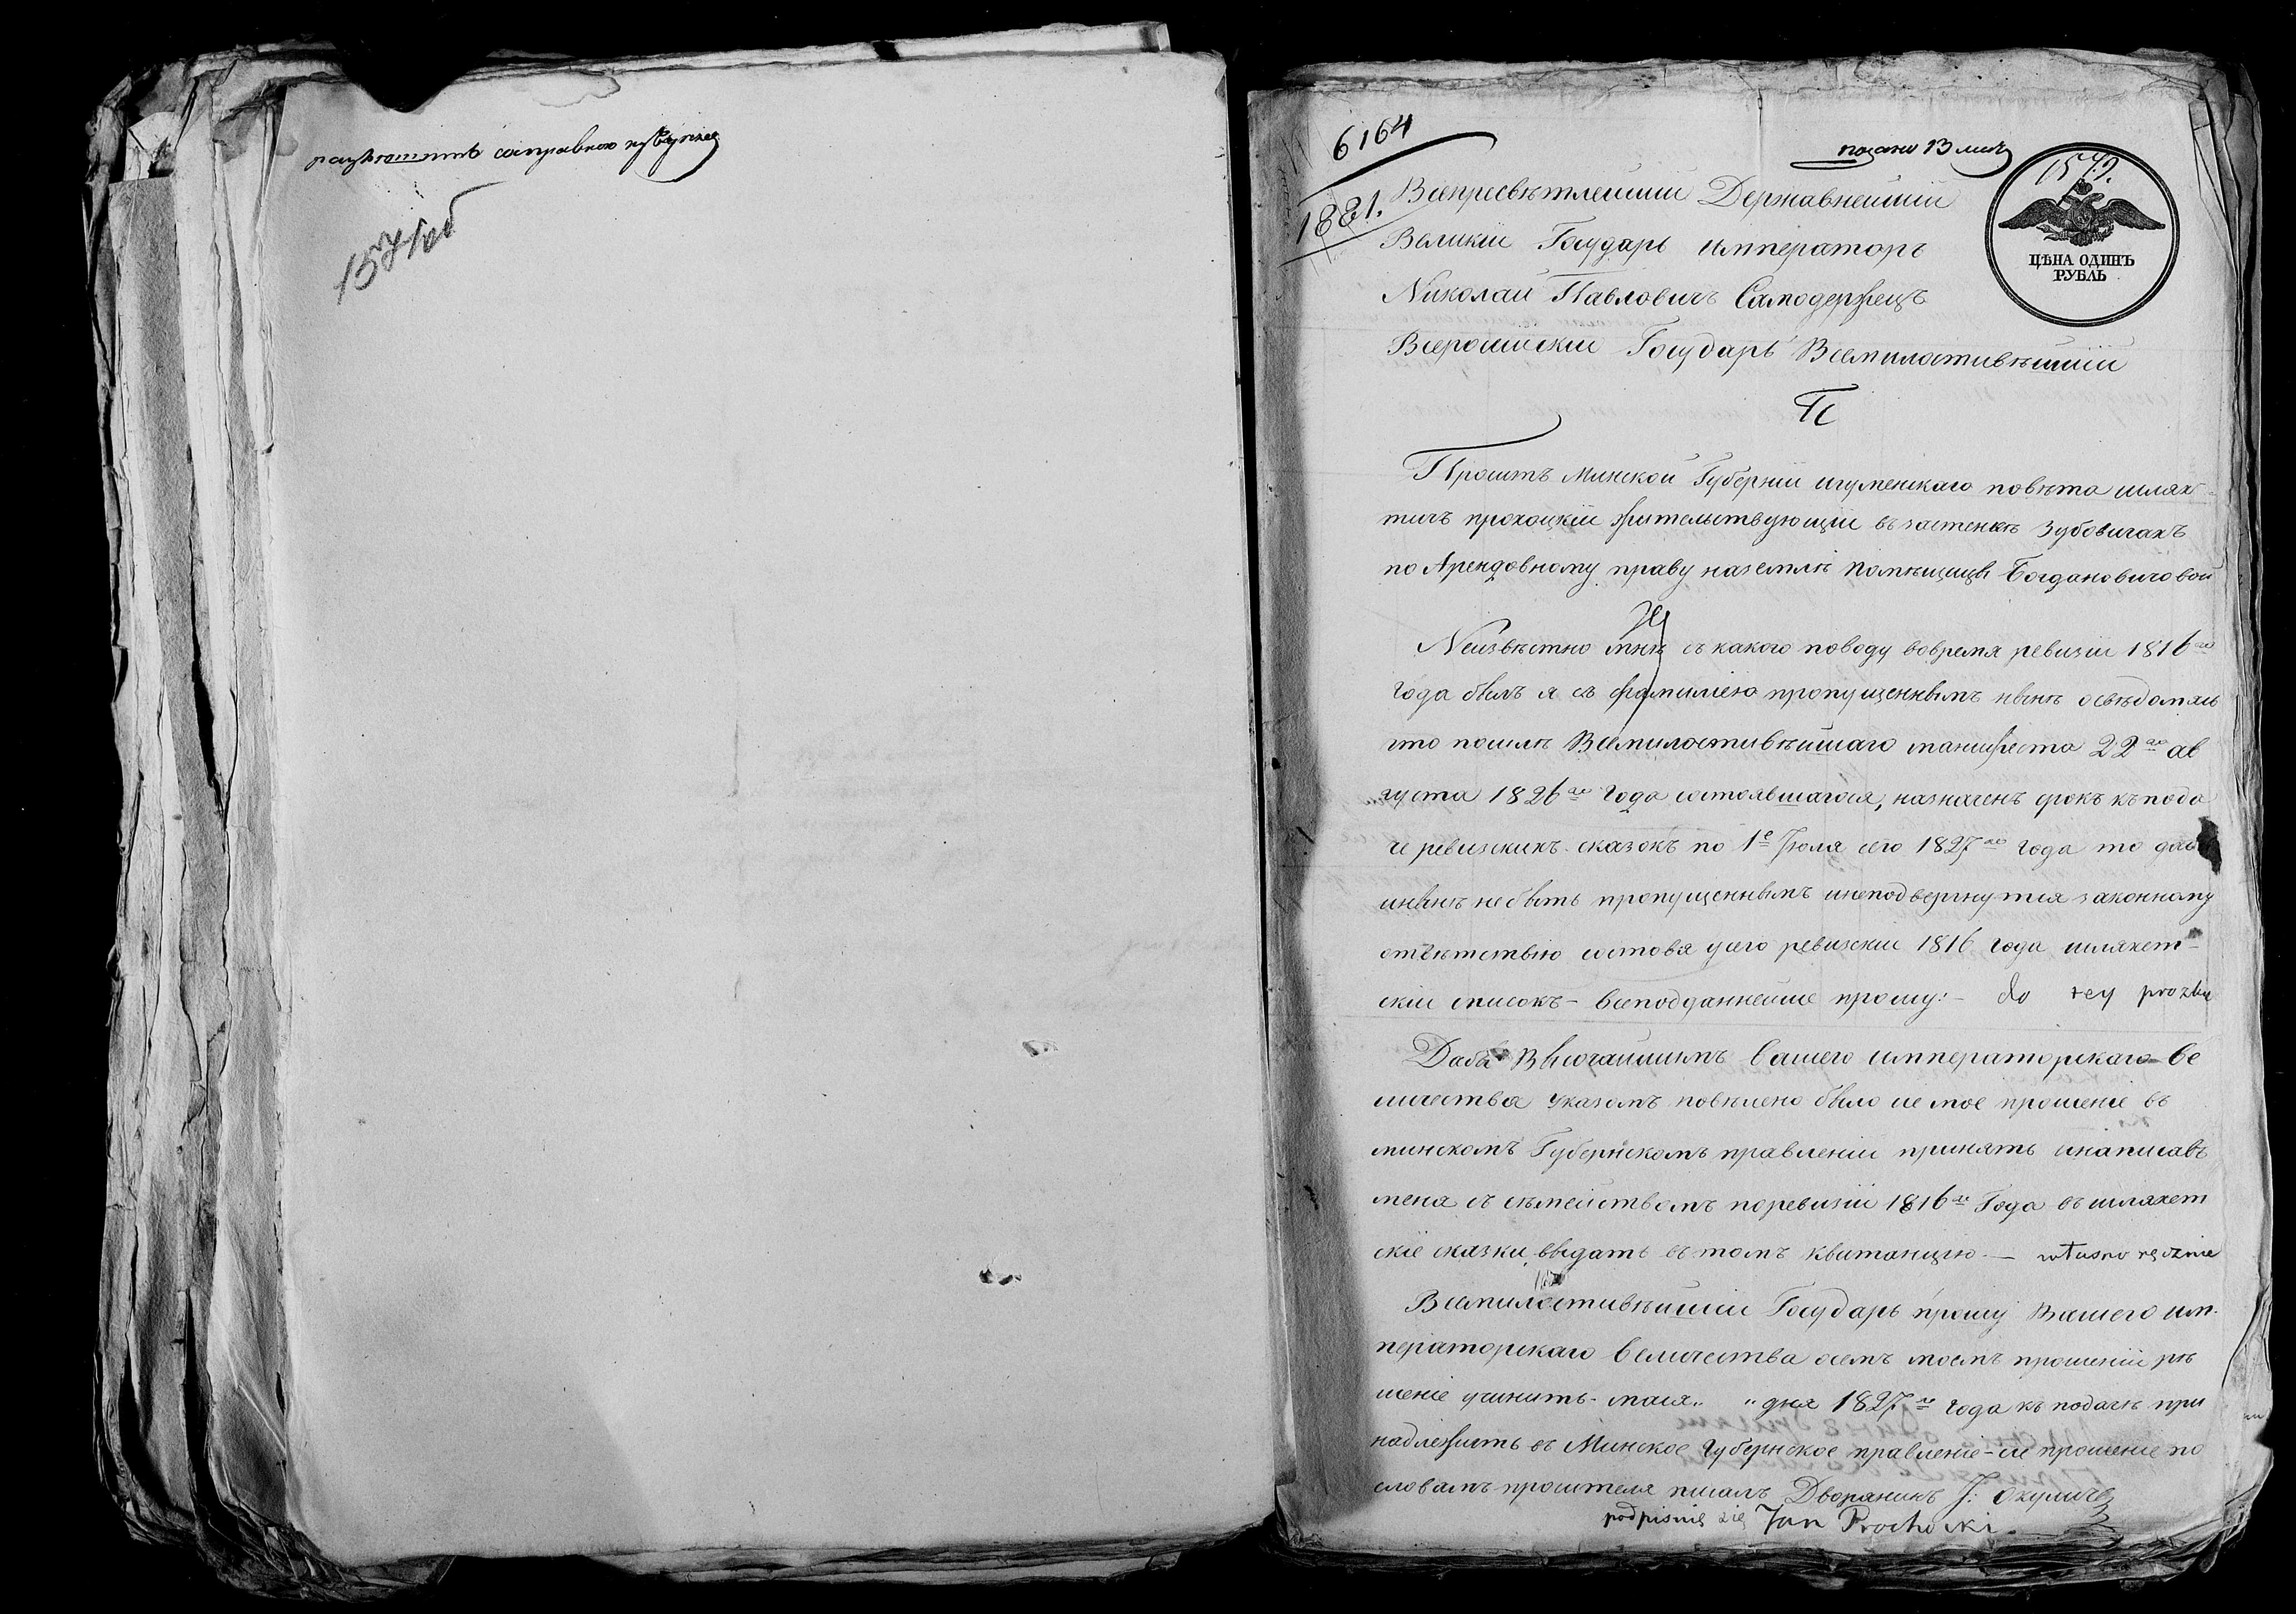 1571 об
6164
подано 13 мая
1572.
1881.
ЦѢНА ОДИНЪ
РУБЛЬ
Всепресвѣтлейшій Державнейшій
Великій Государь императоръ
Николай Павловичъ Самодержецъ
Всеросійскій Государь Всемилостивѣйшій
Проситъ Минской Губерніи игуменскаго повѣта шлях-
тичъ прохоцкій жительствующій въ застенкѣ Зубовичахъ
по Арендовному праву наземлѣ помѣщицы Богдановичовой
Неизвѣстно мнѣ съ какого поводу вовремя ревизіи 1816го
года былъ я съ фамиліею пропущеннымъ нынѣ освѣдомясь
что посилѣ Всемилостивѣйшаго манифеста 22го ав
густа 1826го года состоявшагося, назначенъ срокъ къ пода
че ревизскихъ сказокъ по 1е Іюля сего 1827го года то дабы
инынѣ небыть пропущеннымъ инеподвергнутся законному
отвѣтствію составя усего ревизскій 1816 года шляхет-
скій списокъ - всеподданнейше прошу: - do tey prozby
Дабы Высочайшимъ вашего императорскаго ве
личества указомъ повѣлено было сие мое прошеніе въ
минскомъ Губернскомъ правленіи принять инаписавъ
меня съ сѣмействомъ поревизіи 1816го Года въ шляхет
скіе сказки, выдать въ томъ квитанцію. — własno ręcznie
Всемилостивѣйшій Государь прошу Вашего им-
ператорскаго величества осемъ моемъ прошеніи рѣ
шеніе учинить - мая „ „ дня 1827го года къ подачѣ при
надлежитъ въ Минское губернское правленіе - сіе прошеніе по
словамъ просителя писалъ Дворянинъ І: Окуличъ
podpisuię się Jan Prochocki.